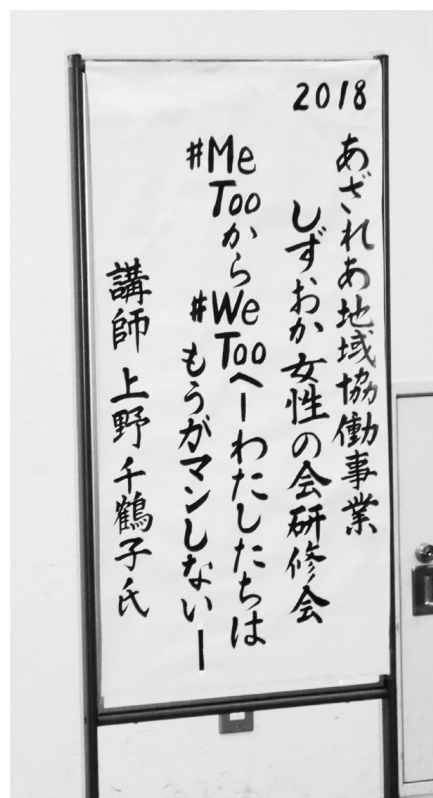 2018
あざれあ地域協働事業
しずおか女性の会研修会
#MeTooから#WeTooへーわたしたちは
もうガマンしないー
講師 上野千鶴子氏